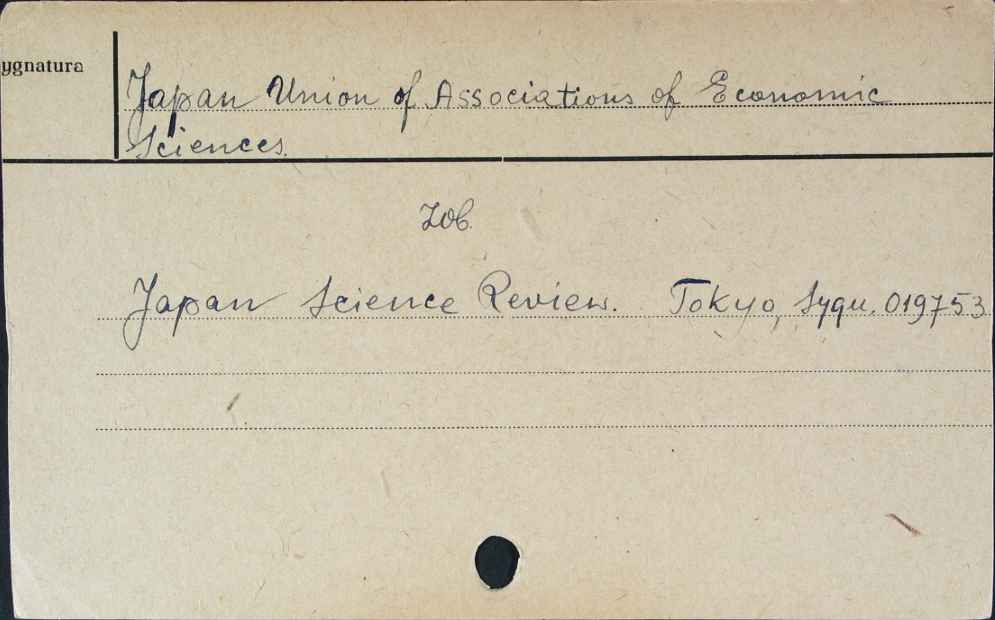 ygnatura
Japan Union of Associations of Economic
Sciences.
Zob.
Japan Science Review. Tokyo, Sygn. 019753